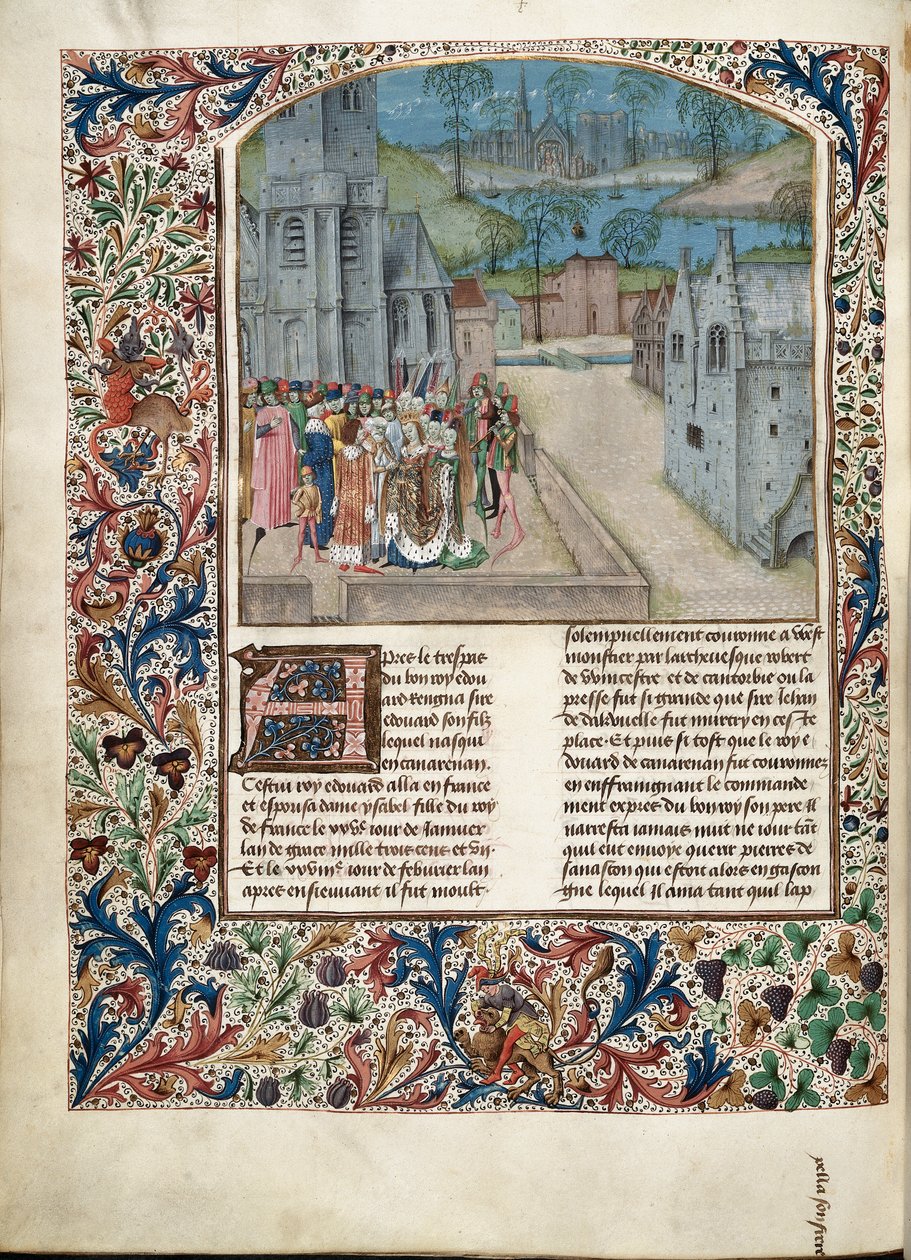 Apres le trespas
du bon roy edou
ard Rengna sire
edouard son filz
lequel nasqui
en carnarenan.
Cestui roy edouard alla en france
et espousa dame ysabel fille du roy
de france le xxve iour de Januier
lan de grace mille trois cens et vij.
Et le xxviiie iour de feburier lan
apres ensieuuant il fut moult
solempnellement couronne a West
monstier par larcheuesque robert
de vvincestre et de cantorbie ou la
presse fut si grande que sire Jehan
de bakuelle fut murtry en ceste
place. Et puis si tost que le roy e
douard de canarenan fut couronnez
en enffraingnant le commande
ment expres du bon roy son pere Il
narresta iamais nuit ne iour tant
quil eut enuoye querir pierres de
sauaston qui estoit alors en gascon
gne lequel Il ama tant quil lap
pella son frere